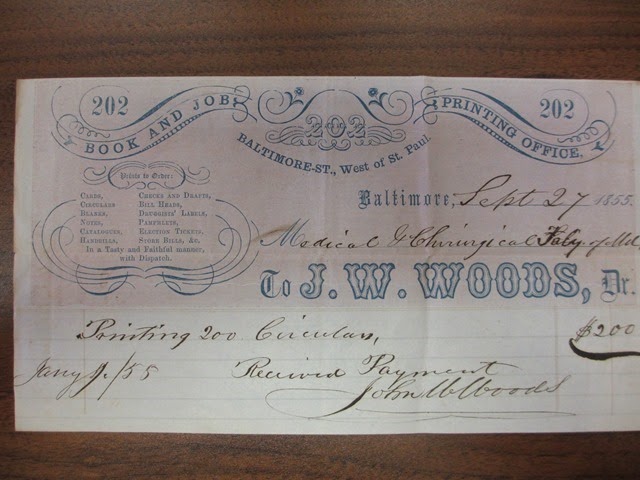 202 BOOK AND JOB 202 PRINTING OFFICE. 202
BALTIMORE-ST., West of St. Paul.
Prints to Order:
CARDS, CHECKS AND DRAFTS,
CIRCULARS BILL HEADS,
BLANKS, DRUGGISTS' LABELS,
NOTES, PAMPHLETS,
CATALOGUES, ELECTION TICKETS,
HANDBILLS, STORE BILLS, &c.
In a Tasty and Faithful manner,
with Dispatch.
Baltimore, Sept 27 1855.
Medical & Chirurgical Falty. of Md
To J. W. WOODS, Dr.
Printing 200 Circulars, $200
Jany /55 Received Payment
John W Woods